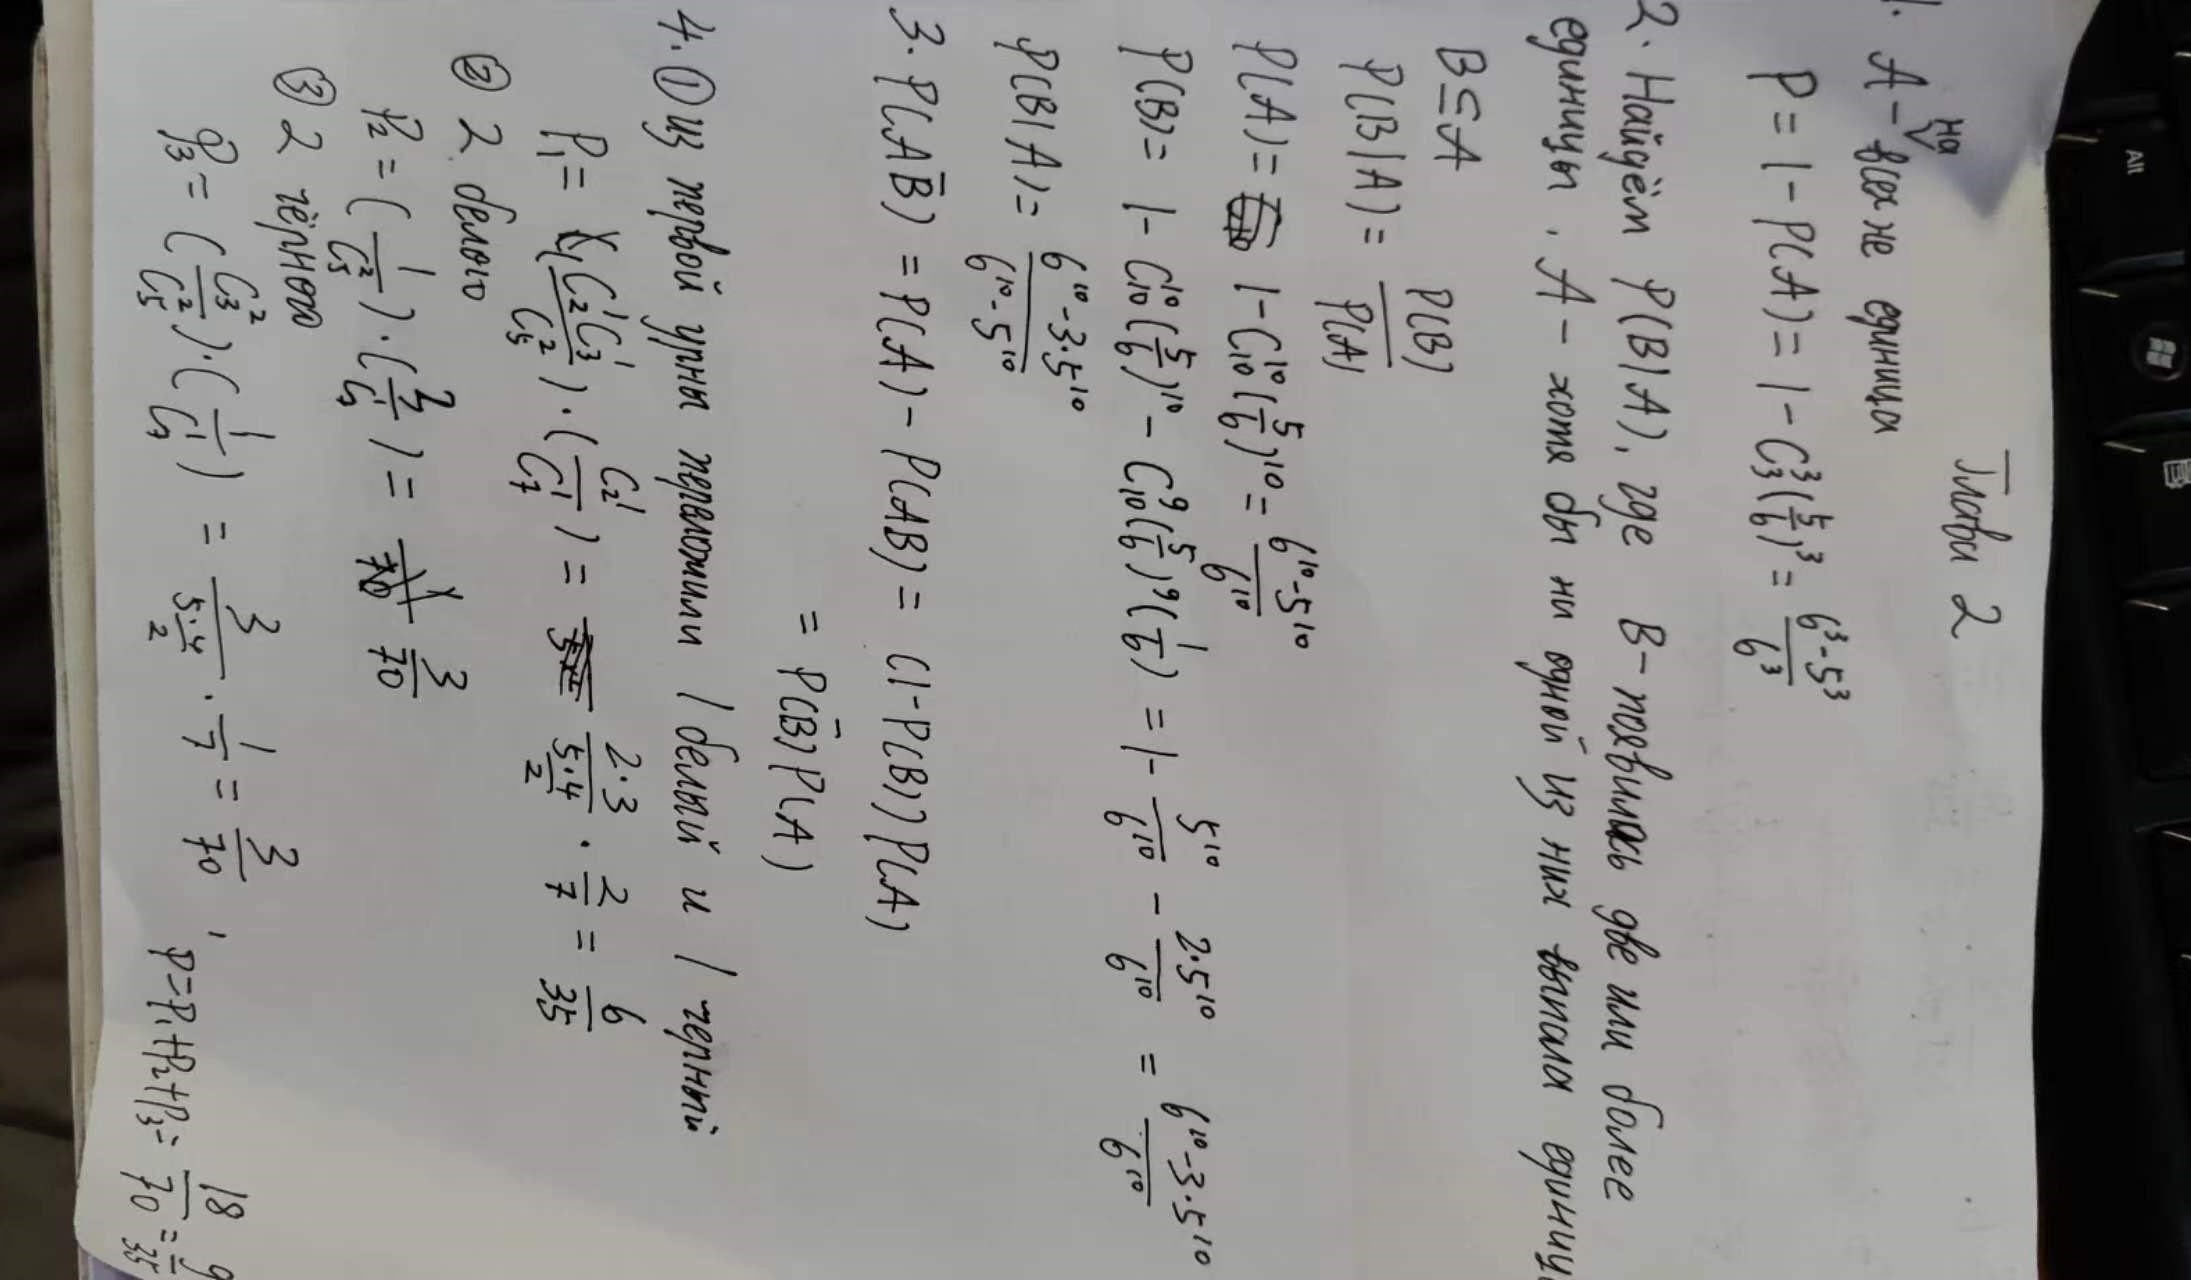 Alt
Глава 2
на
1. A - всех не единица
P = 1 - P(A) = 1 - C_3^3 (5/6)^3 = (6^3 - 5^3)/6^3
2. Найдём P(B|A), где B - появилась две или более
единицы. A - хотя бы ни одной из них выпала единиц
B ⊆ A
P(B|A) = P(B)/P(A)
P(A) = 1 - C_10^10 (5/6)^10 = (6^10 - 5^10)/6^10
P(B) = 1 - C_10^10 (5/6)^10 - C_10^9 (5/6)^9 (1/6) = 1 - 5^10/6^10 - 2·5^10/6^10 = (6^10 - 3·5^10)/6^10
P(B|A) = (6^10 - 3·5^10)/(6^10 - 5^10)
3. P(AB̄) = P(A) - P(AB) = (1 - P(B)) P(A)
= P(B̄) P(A)
4. ① из первой урны переложили 1 белый и 1 черный
P_1 = (C_2^1 C_3^1 / C_5^2) · (C_2^1 / C_7^1) = (2·3)/(5·4/2) · 2/7 = 6/35
② 2 белого
P_2 = (1/C_5^2) · (3/C_7^1) = 3/70
③ 2 чёрного
P_3 = (C_3^2 / C_5^2) · (1/C_7^1) = 3/(5·4/2) · 1/7 = 3/70, P = P_1 + P_2 + P_3 = 18/70 = 9/35